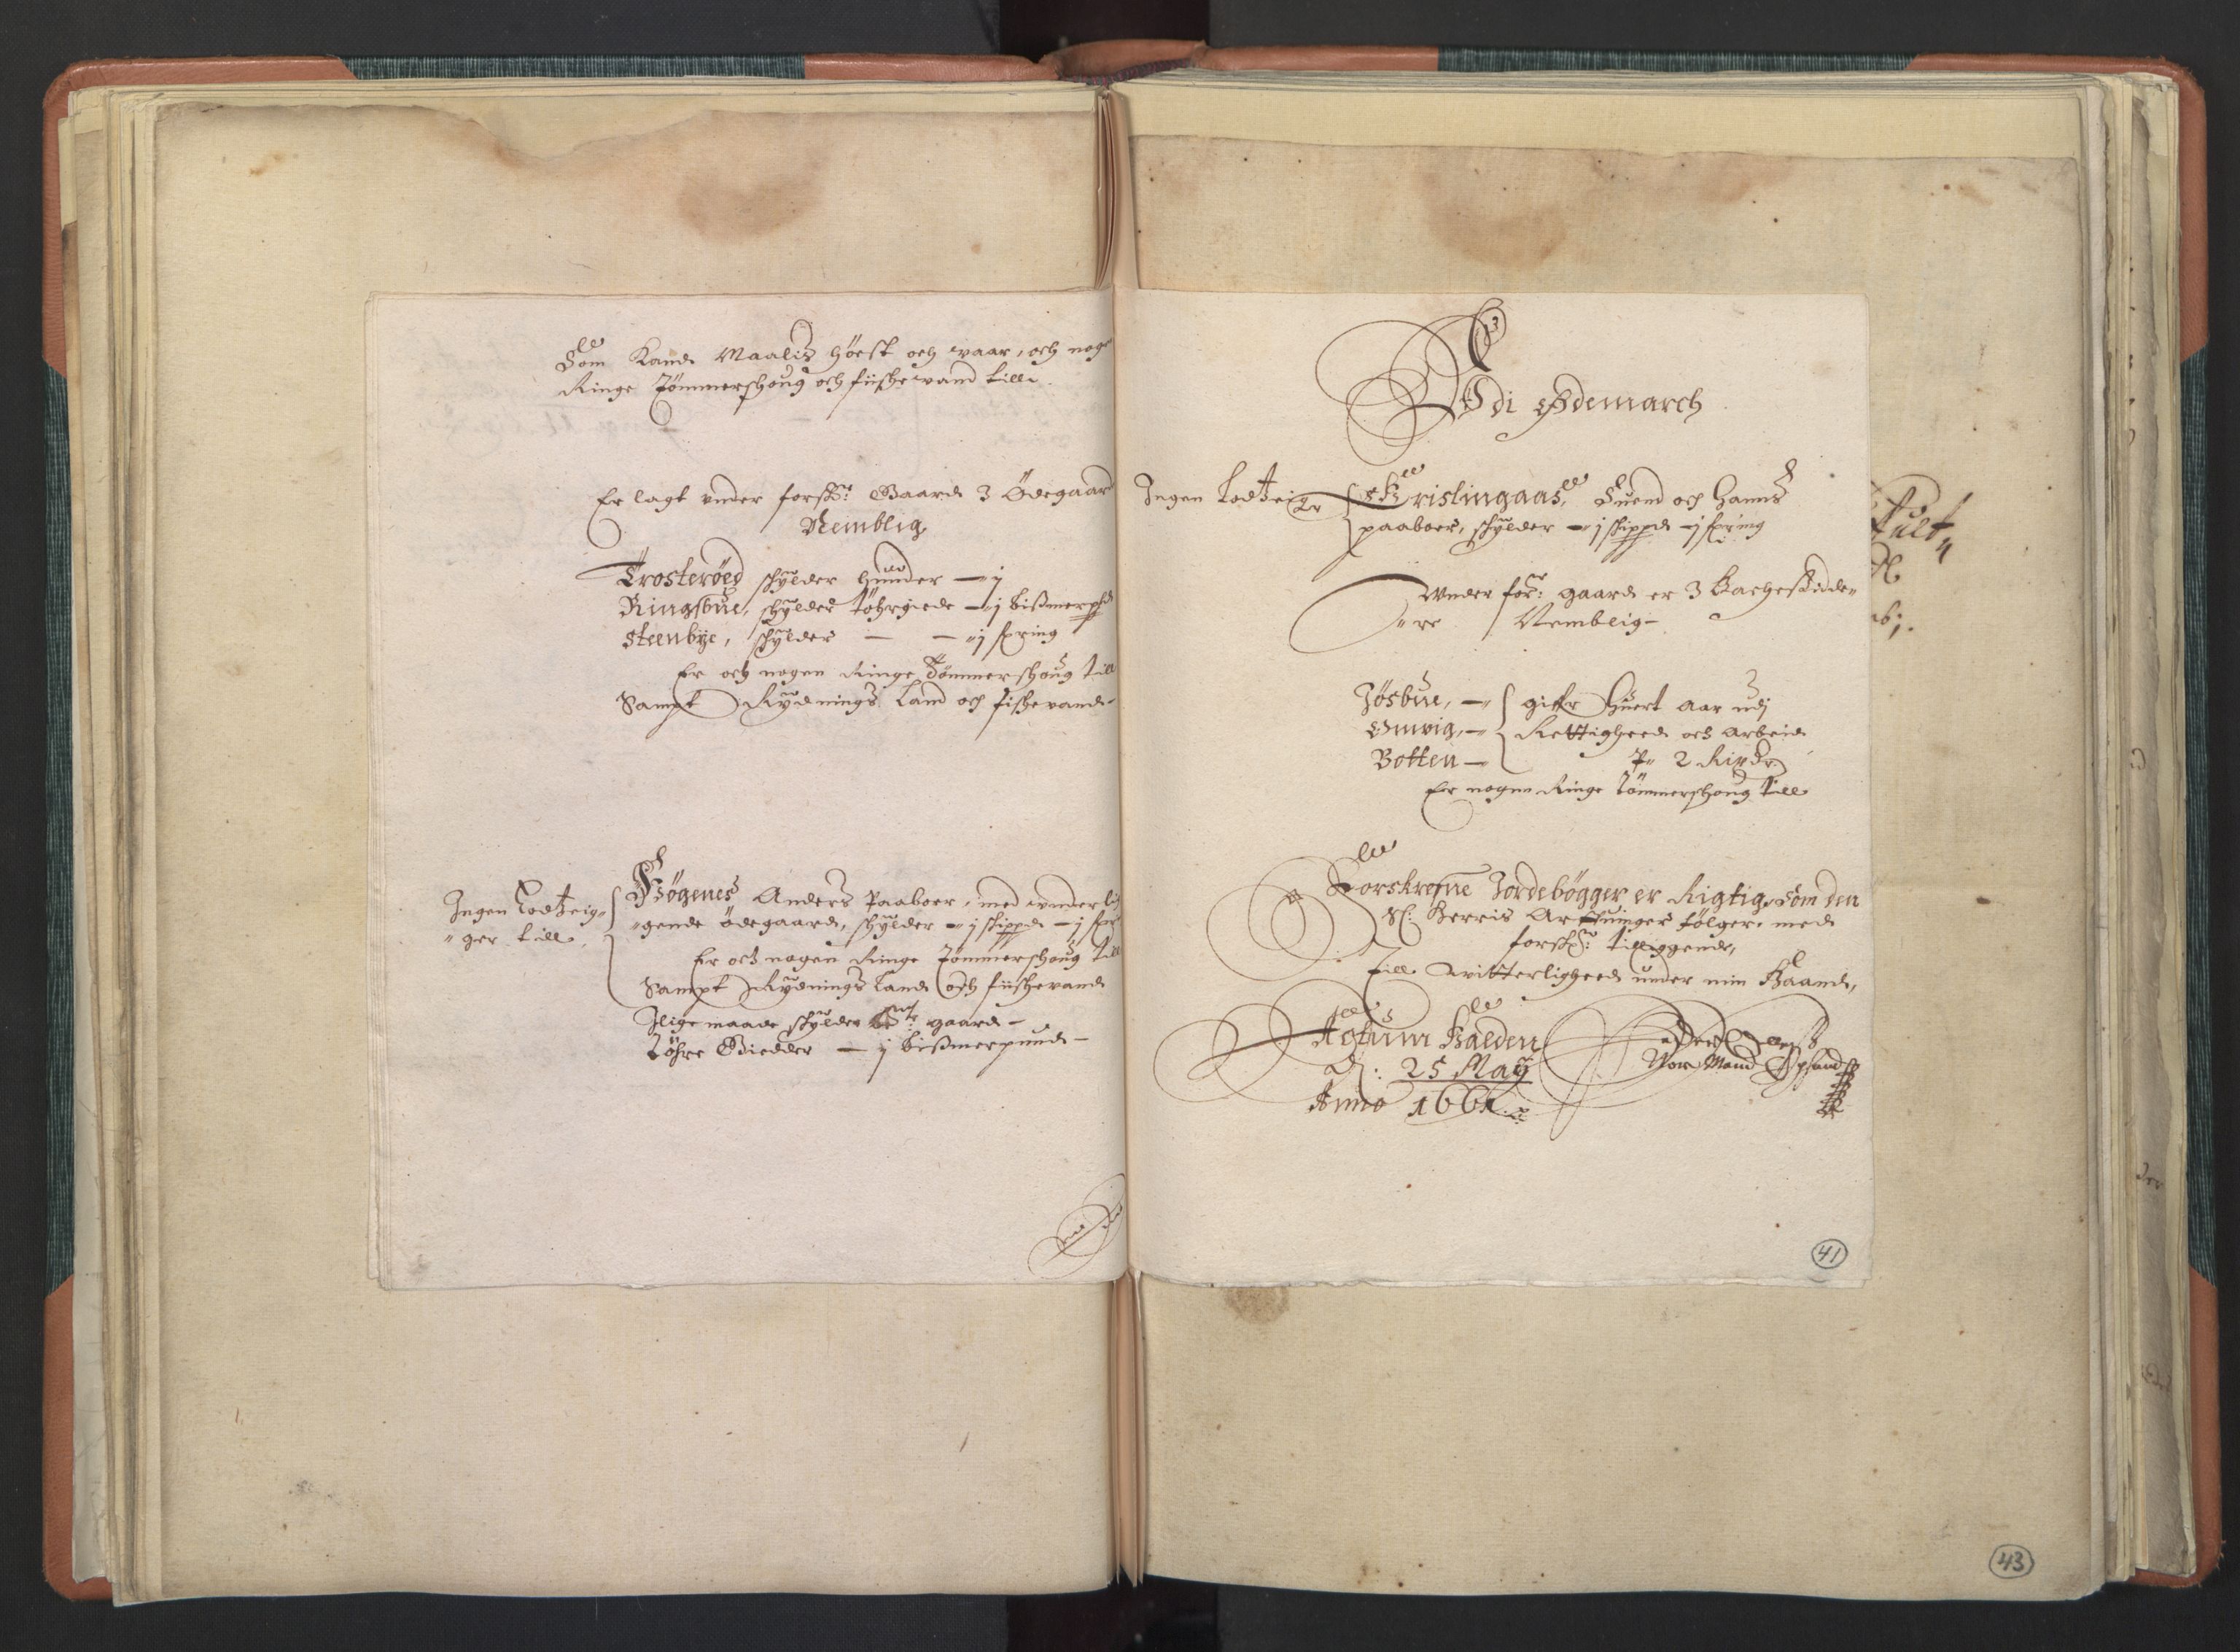 Som Kand Maalis høest och waar, och noge
Ringe Tømmerschoug och fiische vand till.
Er lagt under forschr: Gaard 3 Ødegaard
Nemblig
Trosterøed schylder huuder — j
Ringsbue, schylder tøhrgiede — j bismerpd
Steenbye, schylder — — j spring
Er och nogen Ringe Tømmerschoug till
Sampt Rydnings Land och fischevand
Ingen Lodtzei-
ger till.
Høgenes Anders Paaboer, med underlig
gende ødegaard, schylder — j schippd — j spr
Er och nogen Ringe Tømmerschoug till
Sampt Rydnings Land och fiischevand
Jlige maade schylder gaard
Töhre Giedder — j bismerpund
Udi Ødemarch
Ingen Lodtzeiger
Kristingaas, Suend och Hanns
paaboer, schylder — j schippd — j spring
Under for: gaard er 3 Hachestede
re Nemblig
Jøsbue,
Emvig,
Botten
gifr huert aar udj
Rettigheed och arbeid
P. 2 Rixdr
Er nogen Ringe tømmerschoug till
Forskrefne Jordebøgger er Rigtig som den
Sl: Herris Arfuinger følger med
forschr: tilliggende,
till witterligheed under min Haand,
Actum Halden
d: 25 May
Anno 1661.
41
43